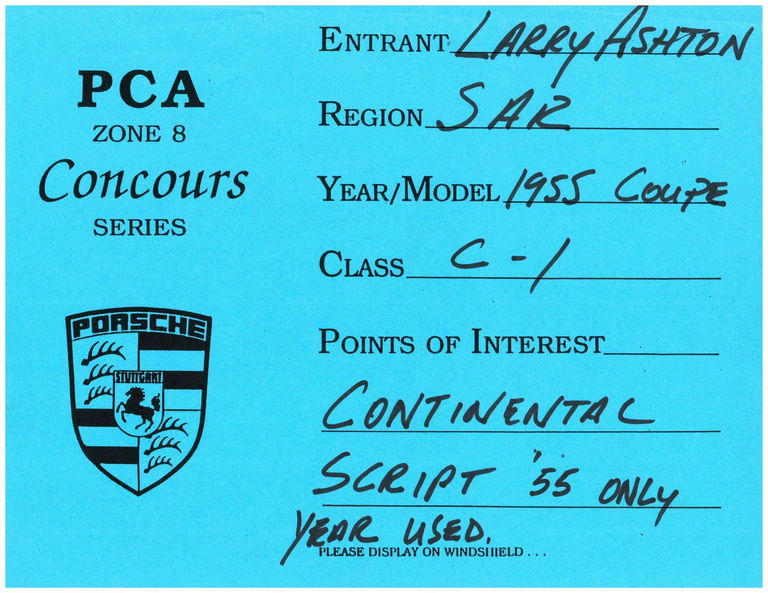 PCA
ZONE 8
Concours
SERIES
PORSCHE
STUTTGART
ENTRANT LARRY ASHTON
REGION SAR
YEAR/MODEL 1955 COUPE
CLASS C-1
POINTS OF INTEREST
CONTINENTAL
SCRIPT '55 ONLY
YEAR USED.
PLEASE DISPLAY ON WINDSHIELD . . .